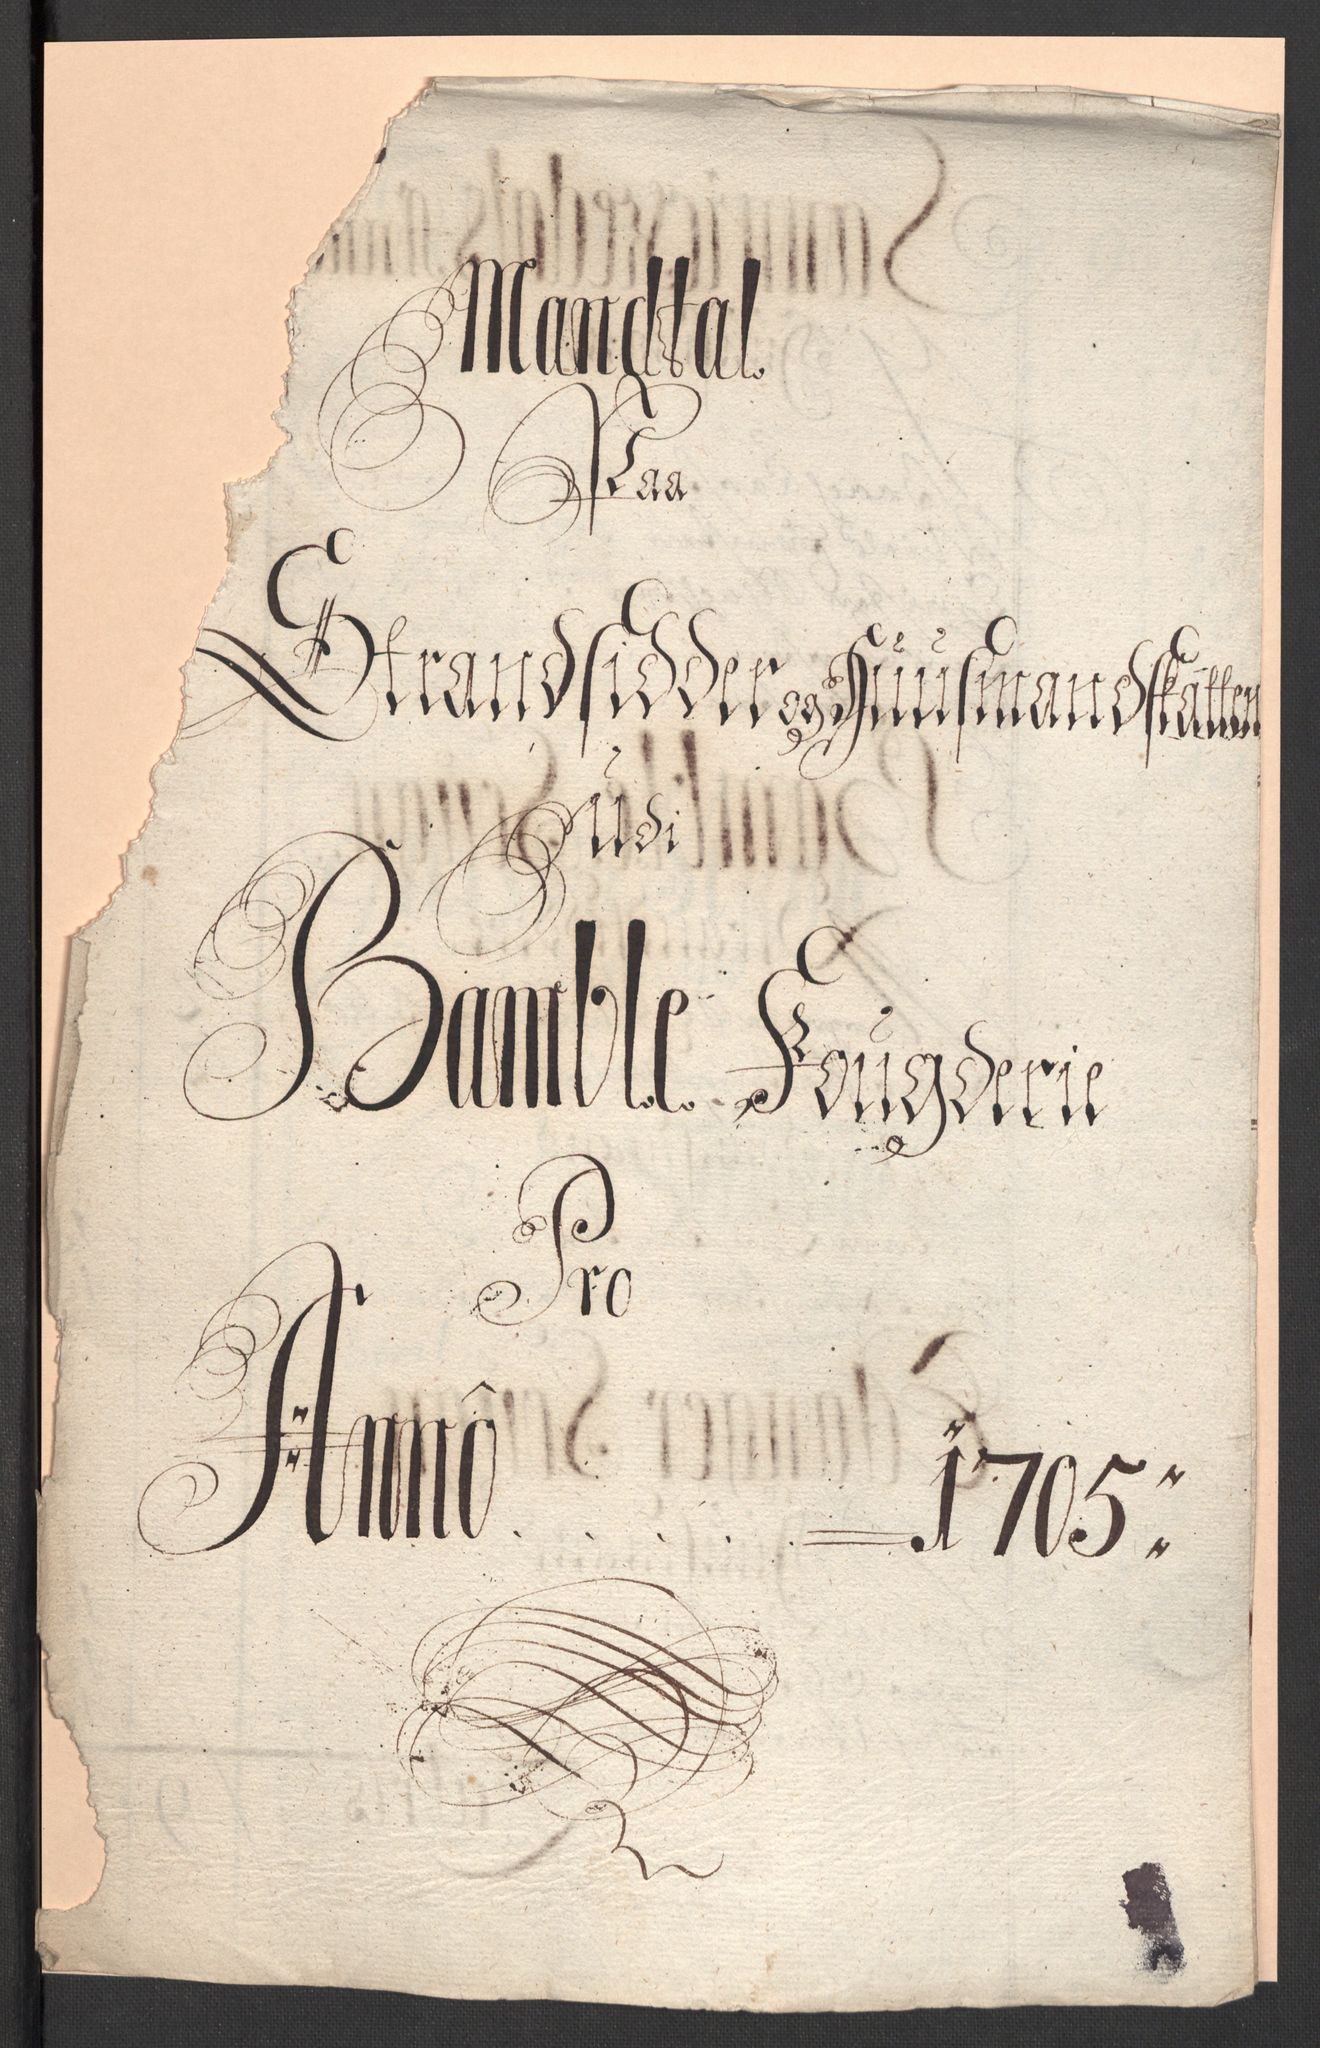 Mandtal.
Paa
Strandsidder og Huusmandskatten
Udi
Bamble Fougderie
Pro
Anno . . . . . = 1705: